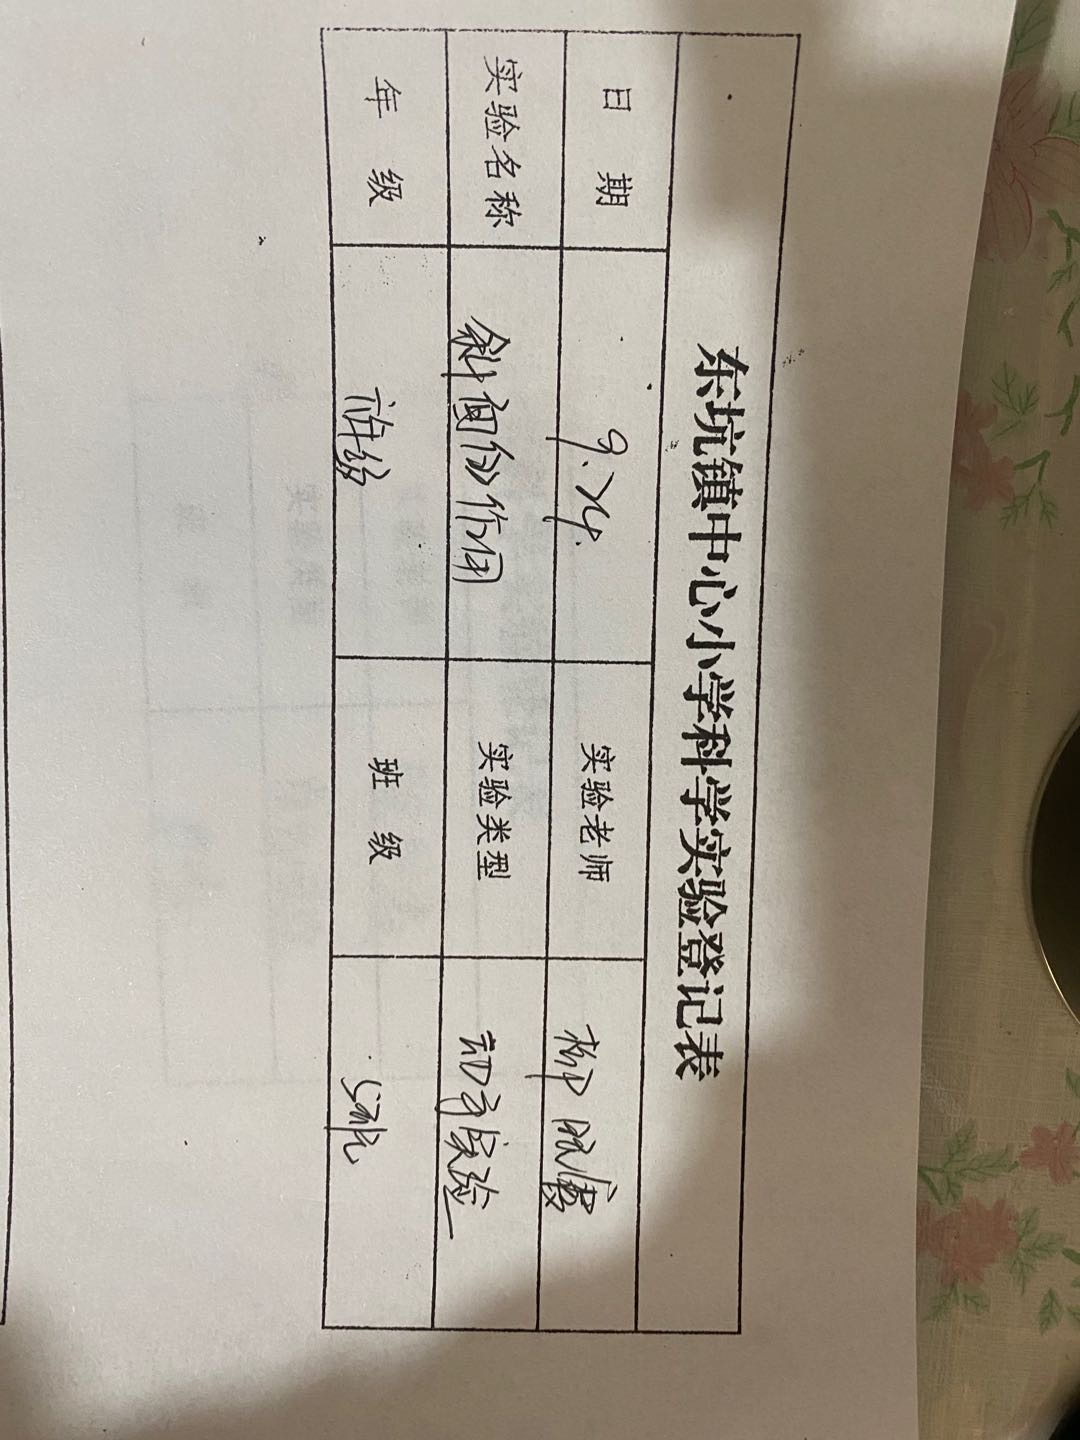 东坑镇中心小学科学实验登记表
日 期 9.24. 实验老师 柳
实验名称 斜面的作用 实验类型 实验
年 级 六年级 班 级